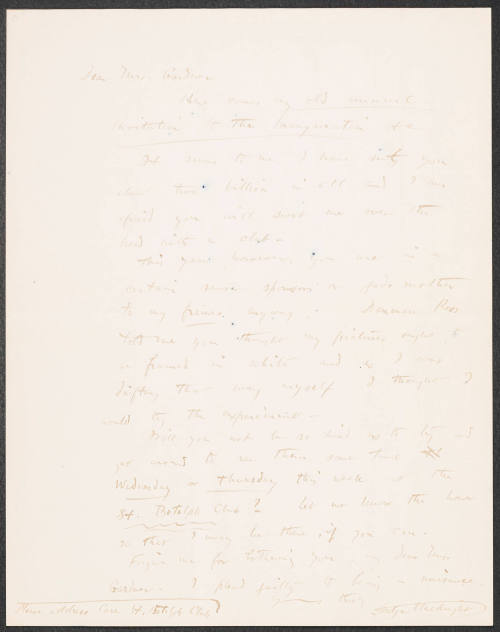 Dear Mrs. Gardner
Here comes my old annual
invitation to the inauguration &c
It seems to me I have sent you
about two billion in all and I am
afraid you will swat me over the
head with a club –
This year however, you are in a
certain sense sponsor or god mother
to my frames anyway. – Denman Ross
told me you thought my pictures ought to
be framed in white and as I was
drifting that way myself I thought I
would try the experiment –
Will you not be so kind as to try and
get around to see them some time
Wednesday or Thursday this week at the
St. Botolph Club? Let me know the hour
so that I may be there, if you can.
Forgive me for bothering you, my dear Mrs.
Gardner – I plead guilty to being a nuisance.
Please address Care St. Botolph Club